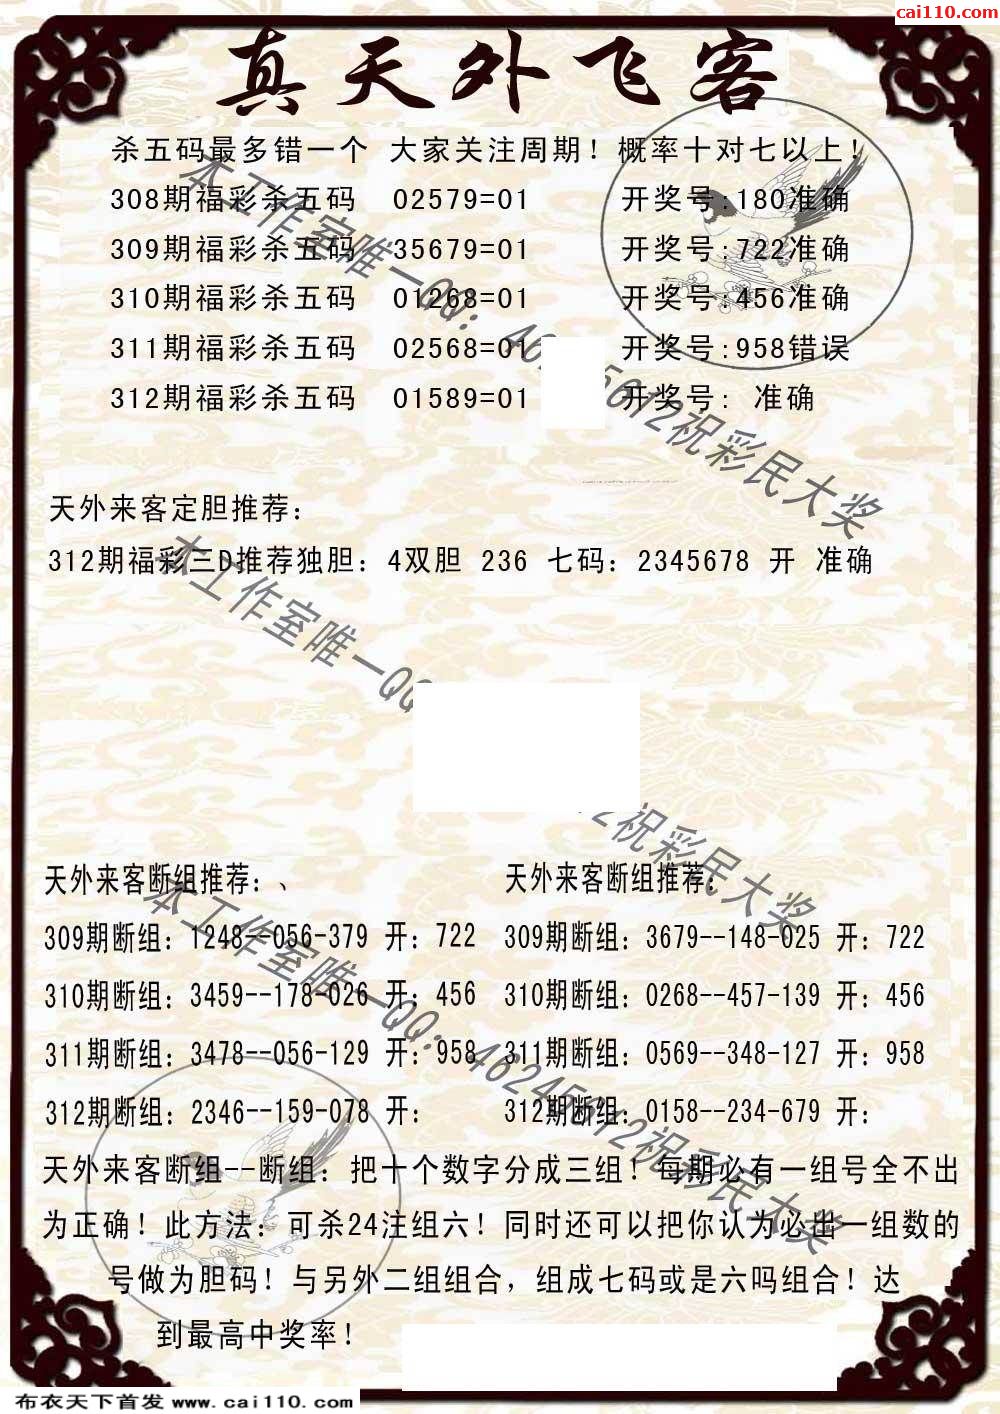 cai110.com
真天外飞客
杀五码最多错一个 大家关注周期！概率十对七以上！
308期福彩杀五码 02579=01 开奖号:180准确
309期福彩杀五码 35679=01 开奖号:722准确
310期福彩杀五码 01268=01 开奖号:456准确
311期福彩杀五码 02568=01 开奖号:958错误
312期福彩杀五码 01589=01 开奖号: 准确
本工作室唯一QQ: 祝彩民大奖
天外来客定胆推荐：
312期福彩三D推荐独胆：4双胆 236 七码：2345678 开 准确
本工作室唯一QQ 祝彩民大奖
天外来客断组推荐：、
309期断组：1248--056-379 开：722
310期断组：3459--178-026 开：456
311期断组：3478--056-129 开：958
312期断组：2346--159-078 开：
天外来客断组推荐：
309期断组：3679--148-025 开：722
310期断组：0268--457-139 开：456
311期断组：0569--348-127 开：958
312期断组：0158--234-679 开：
本工作室唯一QQ: 46245612祝彩民大奖
天外来客断组--断组：把十个数字分成三组！每期必有一组号全不出
为正确！此方法：可杀24注组六！同时还可以把你认为必出一组数的
号做为胆码！与另外二组组合，组成七码或是六吗组合！达
到最高中奖率！
布衣天下首发 www.cai110.com